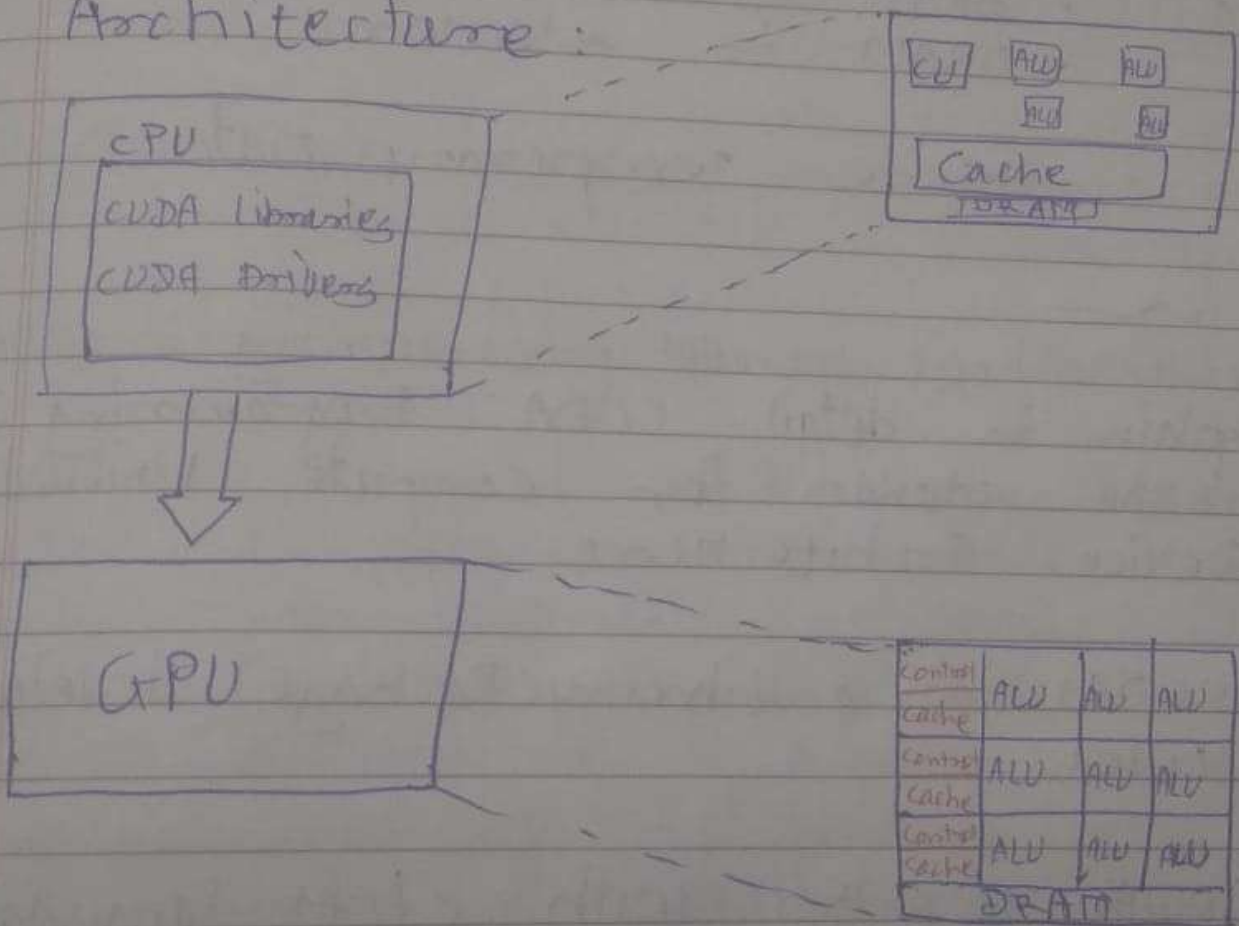 Architecture:
CPU
CUDA Libraries
CUDA Drivers
CU ALU ALU
ALU ALU
Cache
DRAM
GPU
Control
Cache
ALU ALU ALU
Control
Cache
ALU ALU ALU
Control
Cache
ALU ALU ALU
DRAM